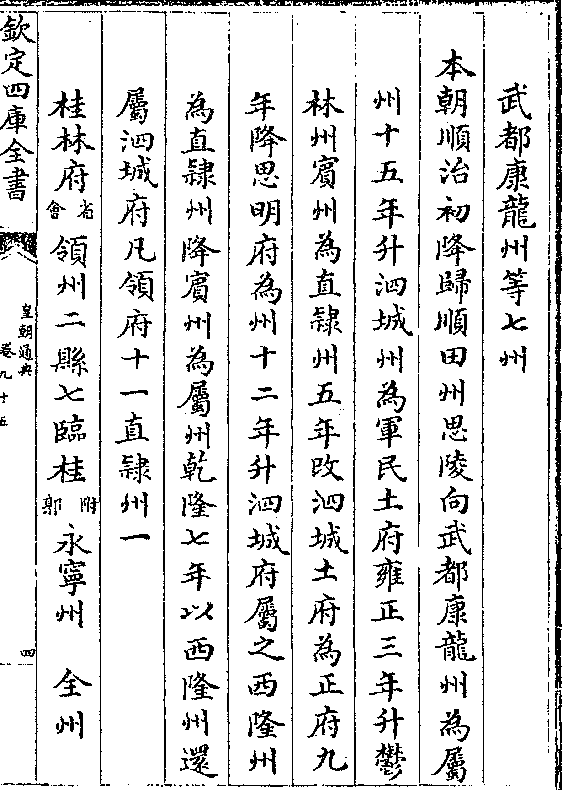 武都康龍州等七州
本朝順治初降歸順田州思陵向武都康龍州為屬
州十五年升泗城州為軍民土府雍正三年升鬱
林州賓州為直隸州五年改泗城土府為正府九
年降思明府為州十二年升泗城府屬之西隆州
為直隸州降賓州為屬州乾隆七年以西隆州還
屬泗城府凡領府十一直隸州一
桂林府省會領州二縣七臨桂附郭永寧州 全州
欽定四庫全書
皇朝通典
卷九十五
四